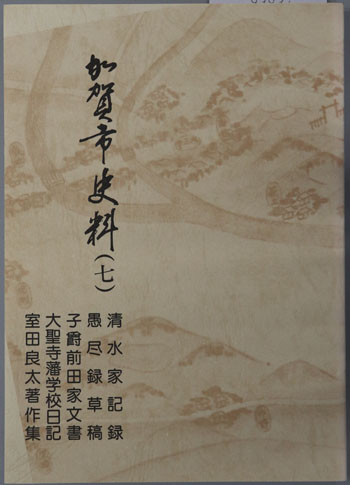 加賀市史料(七)
清水家記録
愚尽録草稿
子爵前田家文書
大聖寺藩学校日記
室田良太著作集